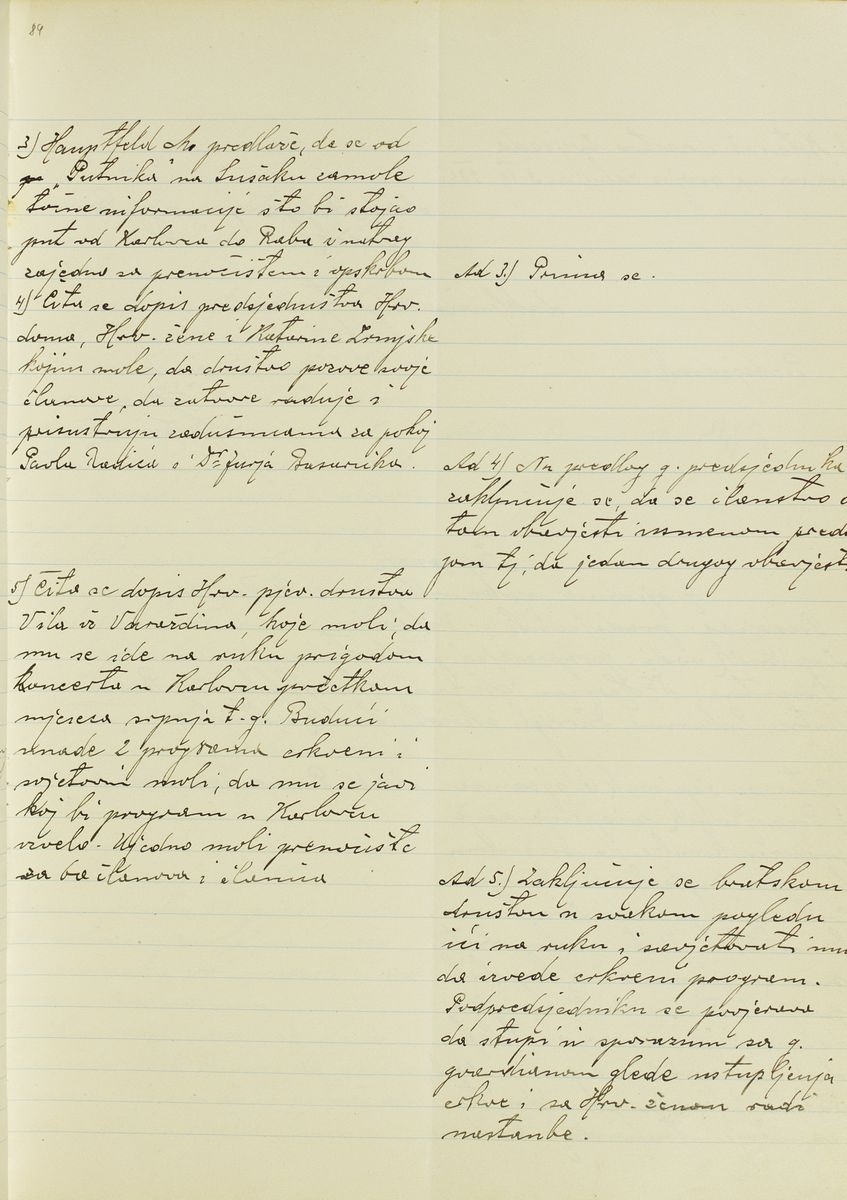 84
3) Hauptfeld M. predlaže, da se od
"Putnika" na Sušaku zamole
točne informacije što bi stojao
put od Karlovca do Raba i natrag
zajedno sa prenoćištem i opskrbom
Ad 3.) Prima se.
4) Čita se dopis predsjedništva Hrv.
doma, Hrv. žene i Katarine Zrinjske
kojim mole, da društvo pozove svoje
članove, da zatvore radnje i
prisustvuju zadušnicama za pokoj
Pavla Radića i Dr Jurja Basarička.
Ad 4) Na predlog g. predsjednika
zaključuje se, da se članstvo o
tom obavjesti usmenom preda
jom tj. da jedan drugog obavjest
5) Čita se dopis Hrv. pjev. društva
Vila iz Varaždina, koje moli, da
mu se ide na ruku prigodom
koncerta u Karlovcu početkom
mjeseca srpnja t. g. Budući
imade 2 programa crkveni i
svjetovni moli, da mu se javi
koj bi program u Karlovcu
izvelo. Ujedno moli prenoćište
za 60 članova i članica
Ad 5.) Zaključuje se bratskom
društvu u svakom pogledu
ići na ruku i savjetovati mu
da izvede crkveni program.
Podpredsjedniku se povjerava
da stupi u sporazum sa g.
gvardianom glede ustupljenja
crkve i sa Hrv. ženom radi
nastanbe.